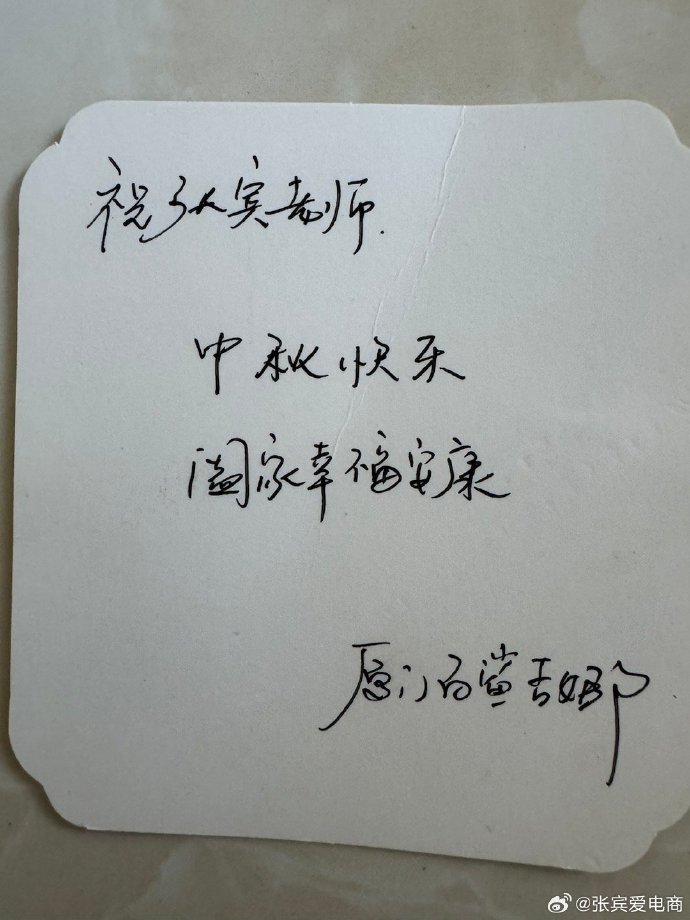 祝张宾老师
中秋快乐
阖家幸福安康
厦门百鲨吉娜
@张宾爱电商